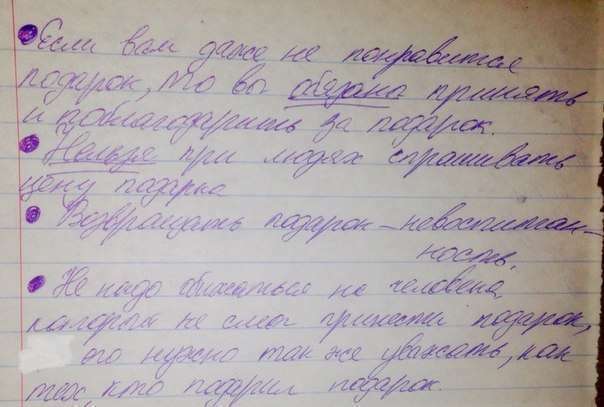 Если вам даже не понравится
подарок, то вы обязана принять
и поблагодарить за подарок.
Нельзя при людях спрашивать
цену подарка
Возвращать подарок – невоспитан-
ность.
Не надо обижаться на человека,
который не смог принести подарок,
его нужно так же уважать, как
тех, кто подарил подарок.